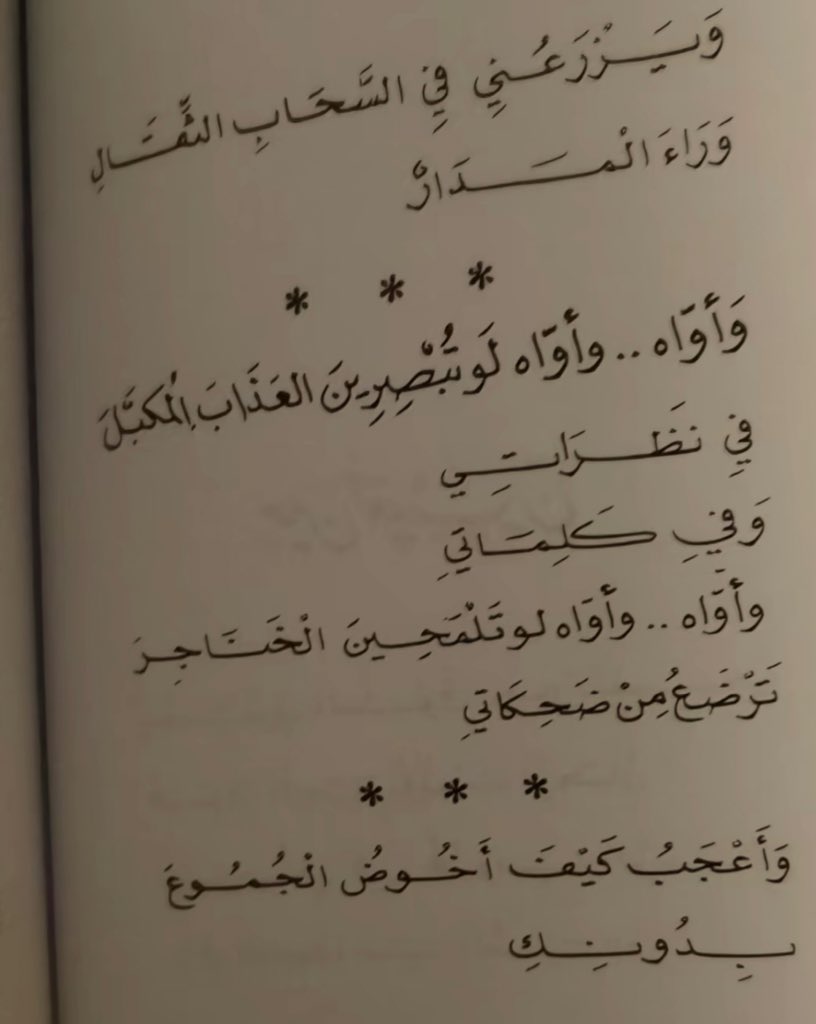 وَيَـزْرَعُـنِي فِي السَّحَابِ الثِّقَـالِ
وَرَاءَ الْمَـدَارْ
* * *
وَأوَّاه .. وأوَّاه لَو تُبْصِرِينَ العَذَابَ المُكَبَّلَ
فِي نَظَـرَاتِـي
وَفي كَلِمَـاتِي
وأوَّاه .. وأوَاه لو تَلْمَحِـينَ الْخَنَـاجِـرَ
تَرْضَعُ مِنْ ضَحِكَاتي
* * *
وَأَعْجَبُ كَيْفَ أَخُـوضُ الْجُمُـوعَ
بِـدُونِـكِ